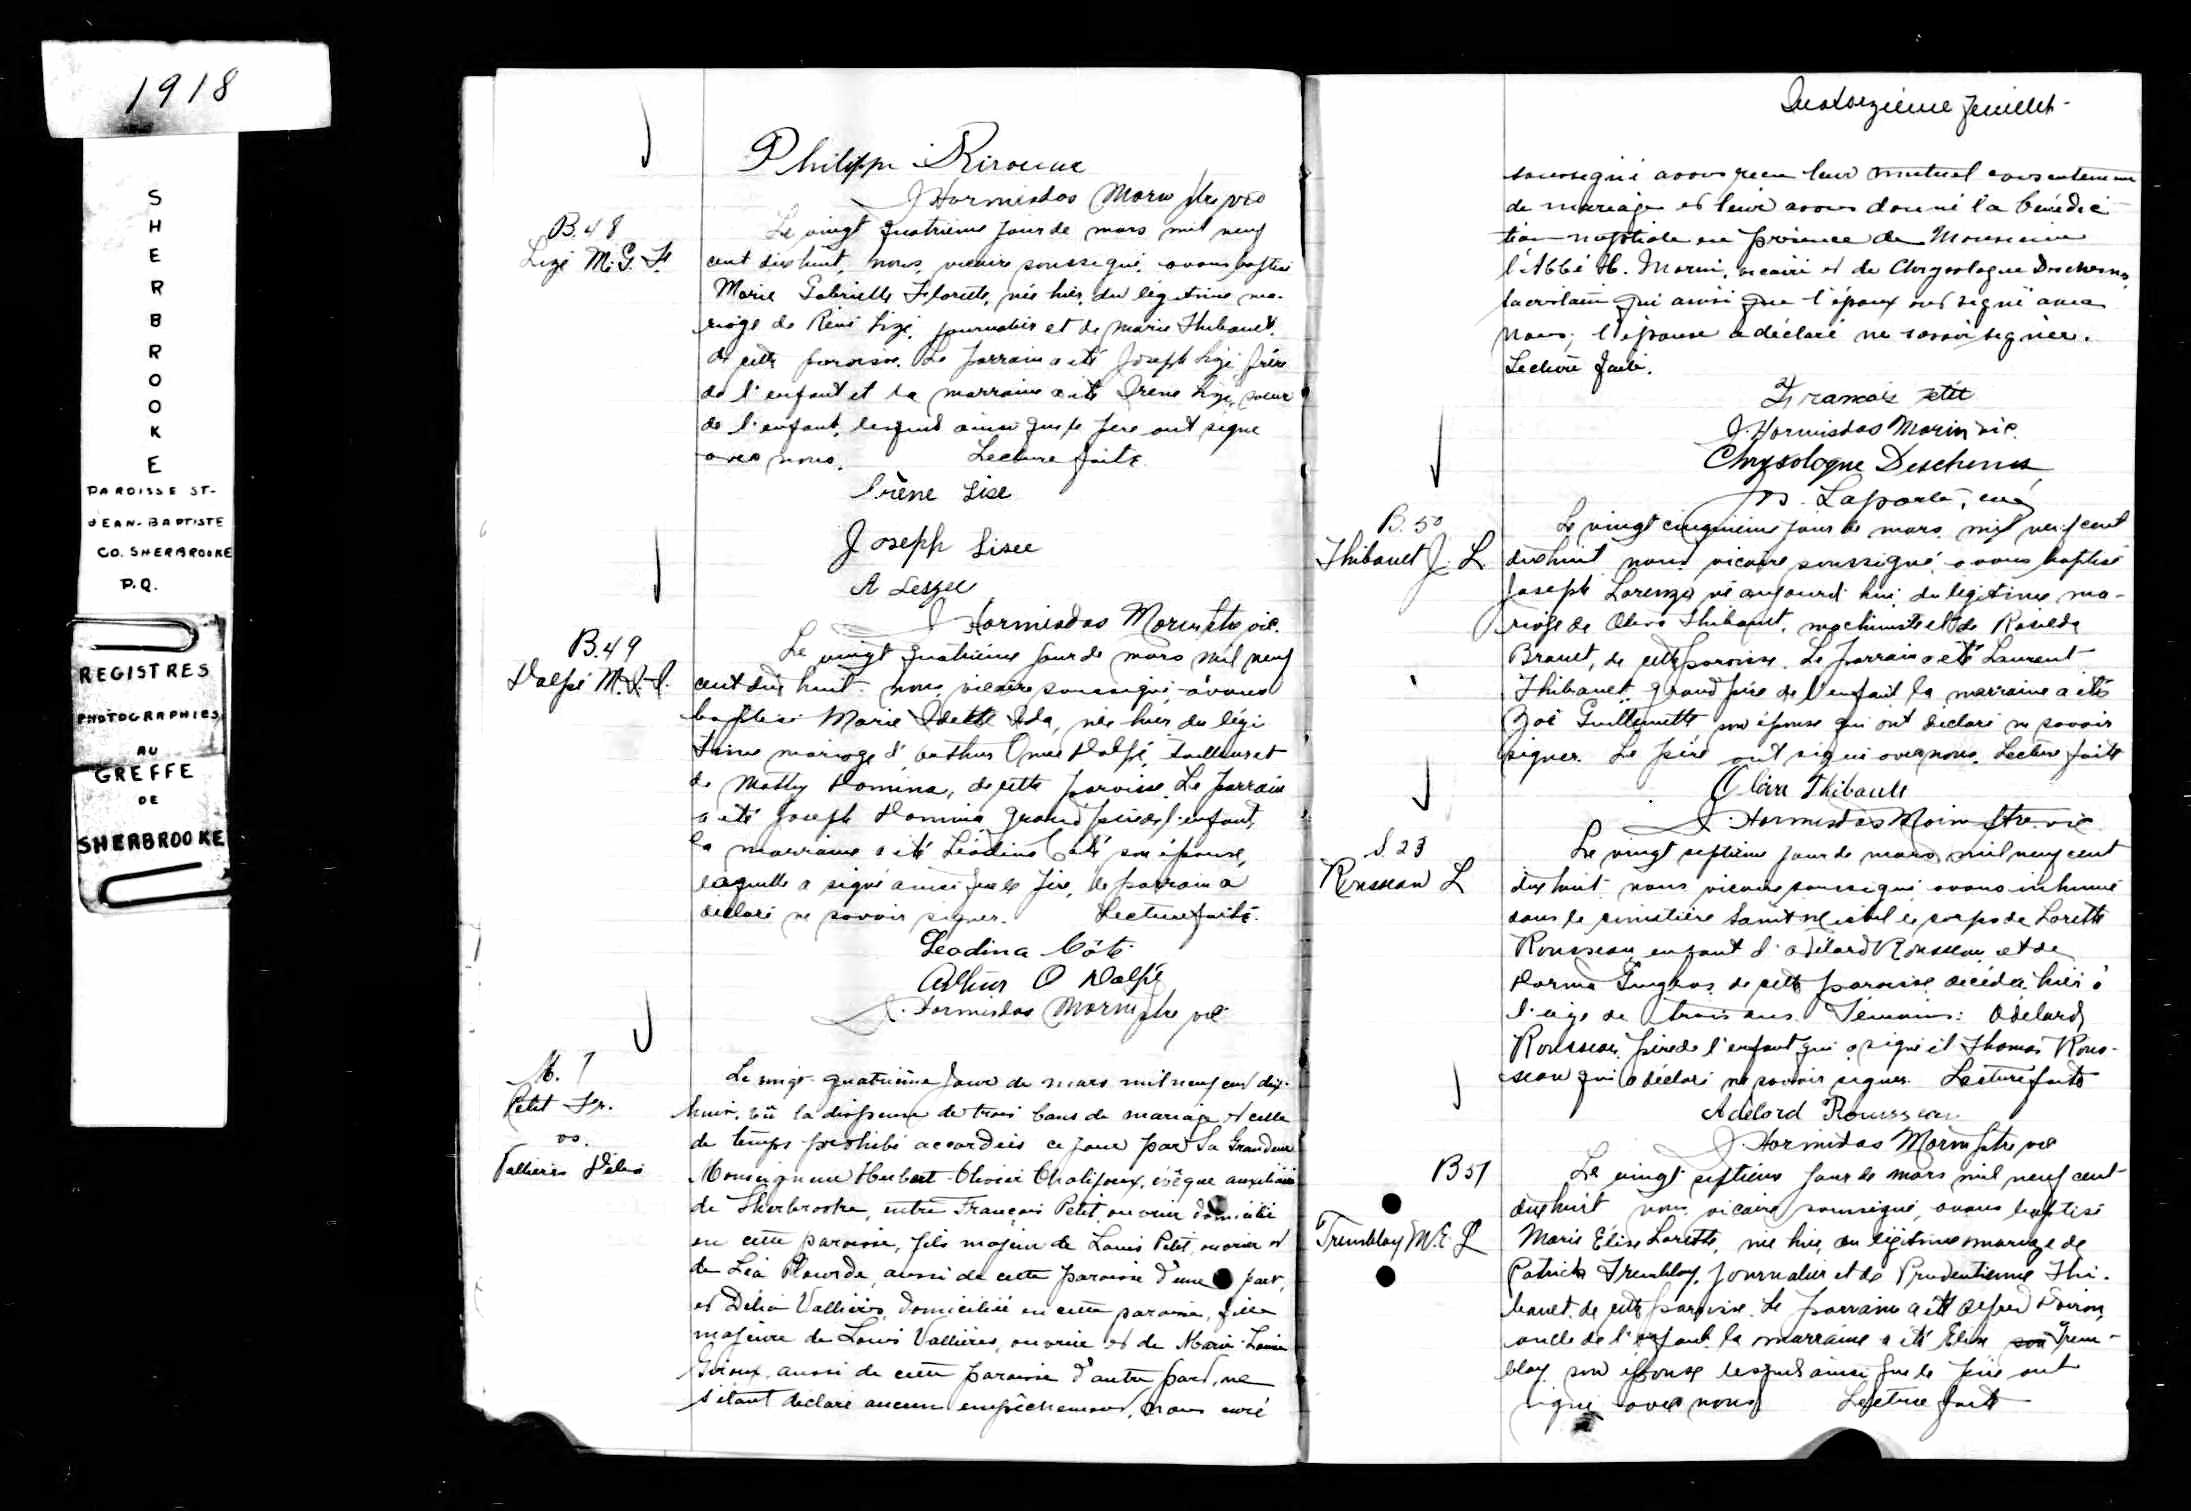 1918
SHERBROOKE
PAROISSE ST-
JEAN-BAPTISTE
CO. SHERBROOKE
P.Q.
REGISTRES
PHOTOGRAPHIES
AU
GREFFE
DE
SHERBROOKE
Philippe Kirouac
J Hormisdas Morin ptre vic
B. 48
Lizé M. G. F.
Le vingt quatrième jour de mars mil neuf
cent dix huit, nous, vicaire soussigné, avons baptisé
Marie Gabrielle Florette, née hier, du légitime ma-
riage de René Lizé, journalier et de Marie Thibault,
de cette paroisse. Le parrain a été Joseph Lizé, frère
de l'enfant et la marraine a été Irène Lizé, soeur
de l'enfant, lesquels ainsi que le père ont signé
avec nous. Lecture faite.
Irène Lise
Joseph Lisee
J Hormisdas Morin ptre vic.
B. 49
Dalpé M. I. I.
Le vingt quatrième jour de mars mil neuf
cent dix huit nous, vicaire soussigné, avons
baptisé Marie Idella Ida, née hier du légi
time mariage d'Arthur Omer Dalpé, tailleur et
de Domina, de cette paroisse. Le parrain
a été Joseph Domina grand père de l'enfant,
la marraine a été Léodina Côté son épouse,
laquelle a signé ainsi que le père, le parrain a
déclaré ne savoir signer. Lecture faite.
Leodina Côté
Arthur O Dalpé
J. Hormisdas Morin ptre vic
M. 7
Petit Fr.
vs.
Vallières Délia
Le vingt-quatrième jour de mars mil neuf cent dix-
huit, vû la dispense de trois bans de mariage et celle
de temps prohibé accordées ce jour par Sa Grandeur
Monseigneur Hubert-Olivier Chalifoux, évêque auxiliaire
de Sherbrooke, entre François Petit, ouvrier domicilié
en cette paroisse, fils majeur de Louis Petit, ouvrier et
de Léa Plourde, aussi de cette paroisse d'une part,
et Délia Vallières, domiciliée en cette paroisse, fille
majeure de Louis Vallières, ouvrier et de Marie-Louise
Giroux, aussi de cette paroisse d'autre part, ne
s'étant déclaré aucun empêchement, nous curé
Quatorzième feuillet-
soussigné avons reçu leur mutuel consentement
de mariage et leur avons donné la bénédic-
tion nuptiale en présence de Monsieur
l'Abbé H. Morin, vicaire et de Chrysologue Deschesnes,
sacristain qui ainsi que l'époux ont signé avec
nous; l'épouse a déclaré ne savoir signer.
Lecture faite.
Francois Petit
J. Hormisdas Morin vic.
Chrysologue Deschenes
Laporte, curé
B. 50
Thibault J. L.
Le vingt cinquième jour de mars mil neuf cent
dix huit nous vicaire soussigné avons baptisé
Joseph Lorenzo né aujourd'hui du légitime ma-
riage de Thibault, machiniste et de Rosilda
Brault, de cette paroisse. Le parrain a été Laurent
Thibault, grand père de l'enfant la marraine a été
Zoé Guillemette son épouse qui ont déclaré ne savoir
signer. Le père ont signé avec nous. Lecture faite
Thibault
J. Hormisdas Morin ptre vic
S. 23
Rousseau L
Le vingt septième jour de mars mil neuf cent
dix huit nous vicaire soussigné avons inhumé
dans le cimetière Saint Michel le corps de Lorette
Rousseau, enfant d'Adélard Rousseau et de
Gingras, de cette paroisse décédée hier à
l'âge de trois ans. Témoins: Adélard
Rousseau, père de l'enfant qui a signé et Thomas Rous-
seau qui a déclaré ne savoir signer. Lecture faite
Adelard Rousseau
J. Hormisdas Morin ptre vic
B 51
Tremblay M. E. L
Le vingt septième jour de mars mil neuf cent
dix huit nous vicaire soussigné, avons baptisé
Marie Elise Lorette, née hier, du légitime mariage de
Patrick Tremblay, journalier et de Prudentienne Thi-
bault de cette paroisse. Le parrain a été Alfred
oncle de l'enfant la marraine a été Elise son Trem-
blay son épouse lesquels ainsi que le père ont
signé avec nous Lecture faite